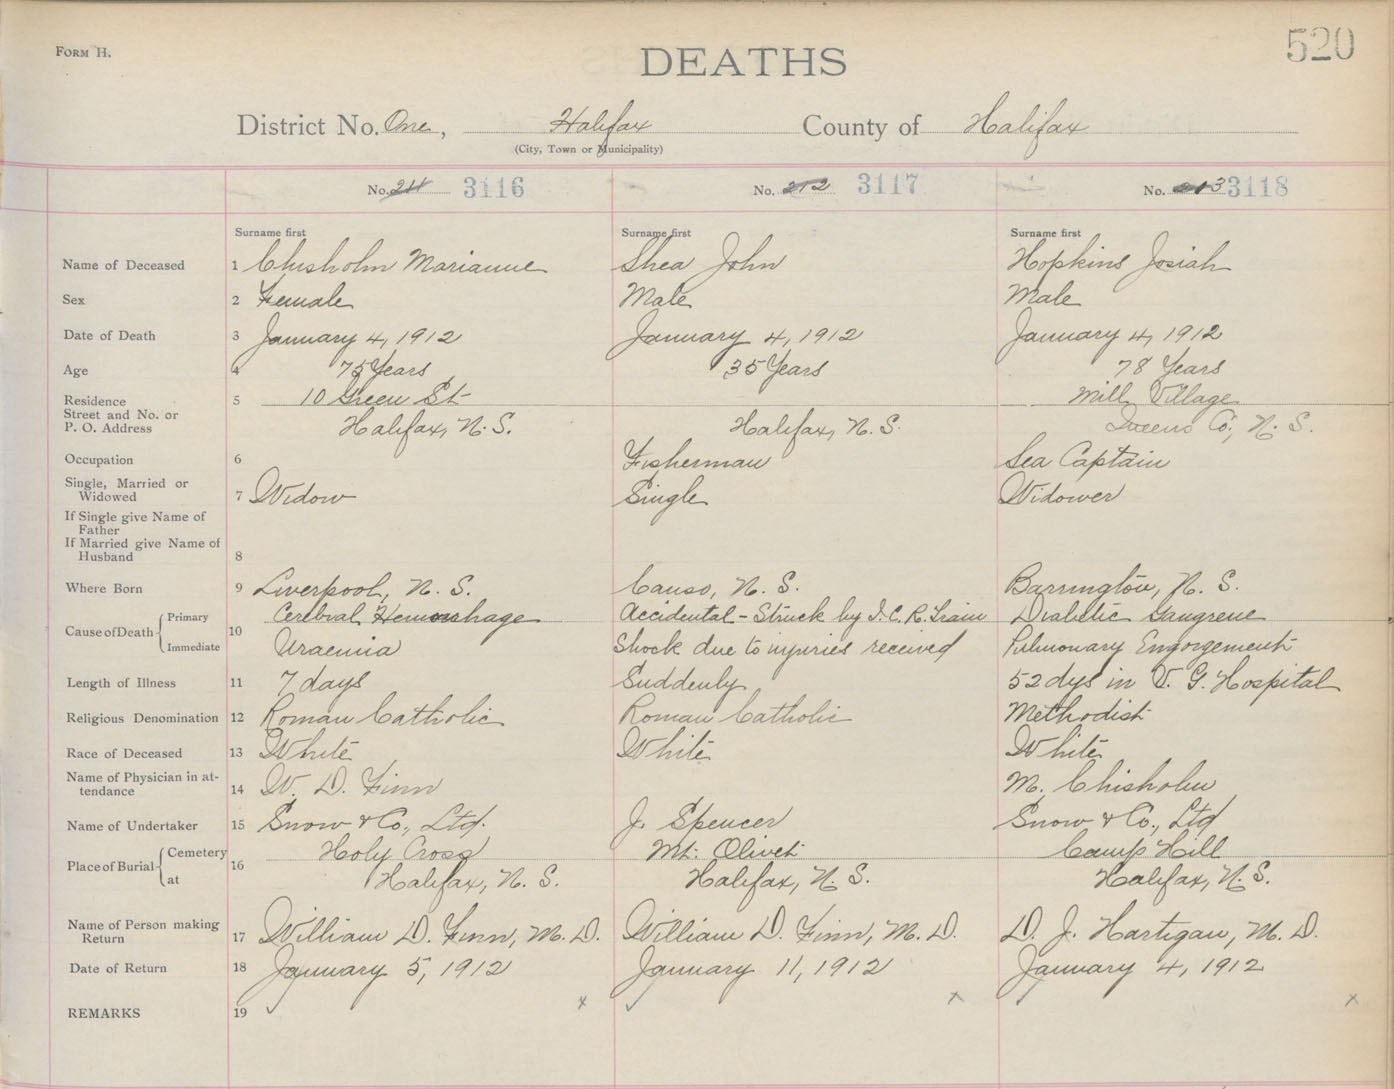 520
FORM H.
DEATHS
District No. One, Halifax County of Halifax
(City, Town or Municipality)
No. 211 3116 No. 212 3117 No. 213 3118
Surname first Surname first Surname first
Name of Deceased 1 Chisholm Marianne Shea John Hopkins Josiah
Sex 2 Female Male Male
Date of Death 3 January 4, 1912 January 4, 1912 January 4, 1912
Age 4 75 Years 35 Years 78 Years
Residence 5 10 Green St Mill Village
Street and No. or
P. O. Address Halifax, N. S. Halifax, N. S. Queens Co; N. S.
Occupation 6 Fisherman Sea Captain
Single, Married or
Widowed 7 Widow Single Widower
If Single give Name of
Father
If Married give Name of
Husband 8
Where Born 9 Liverpool, N. S. Canso, N. S. Barrington, N. S.
Cause of Death Primary Cerebral Hemorrhage Accidental - Struck by I. C. R. Train Diabetic Gangrene
10 Immediate Uraemia Shock due to injuries received Pulmonary Engorgement
Length of Illness 11 7 days Suddenly 52 dys in V. G. Hospital
Religious Denomination 12 Roman Catholic Roman Catholic Methodist
Race of Deceased 13 White White White
Name of Physician in at-
tendance 14 W. D. Finn M. Chisholm
Name of Undertaker 15 Snow & Co., Ltd. J. Spencer Snow & Co., Ltd
Place of Burial Cemetery Holy Cross Mt. Olivet Camp Hill
16 at Halifax, N. S. Halifax, N. S. Halifax, N. S.
Name of Person making
Return 17 William D. Finn, M. D. William D. Finn, M. D. D. J. Hartigan, M. D.
Date of Return 18 January 5, 1912 January 11, 1912 January 4, 1912
REMARKS 19